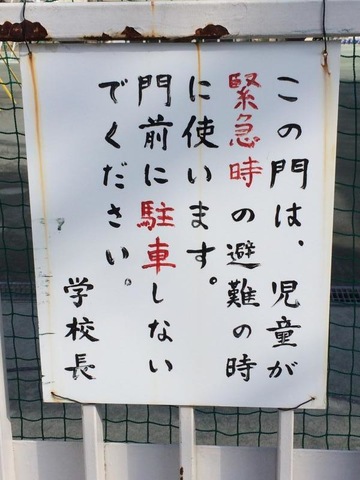 この門は、児童が
緊急時の避難の時
に使います。
門前に駐車しない
でください。
学校長